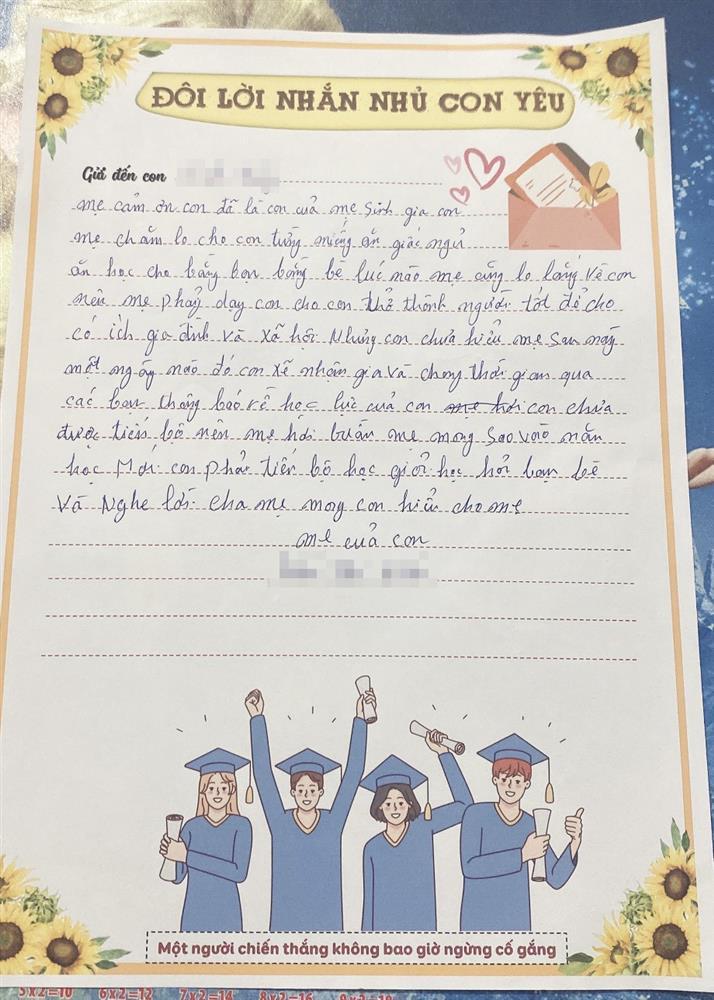 ĐÔI LỜI NHẮN NHỦ CON YÊU
Gửi đến con
mẹ cảm ơn con đã là con của mẹ sinh gia con
mẹ chăm lo cho con tường miếng ăn giấc ngủ
ăn học cho bằng bạn bằng bè lúc nào mẹ cũng lo lắng về con
nên mẹ phảy dạy con cho con thở thành người tốt để cho
có ích gia đình và xã hội Nhưng con chưa hiểu mẹ sau này
một ngày nào đó con xẽ nhận gia và chong thời gian qua
các bạn thông báo về học lực của con mẹ hơi con chưa
được tiến bộ nên mẹ hơi buồn mẹ mong sao vào năn
học Mới con phải tiến bộ học giỏi học hỏi bạn bè
Và Nghe lời cha mẹ mong con hiểu cho mẹ
mẹ của con
Một người chiến thắng không bao giờ ngừng cố gắng
5x2=10 6x2=12 7x2=14 8x2=16